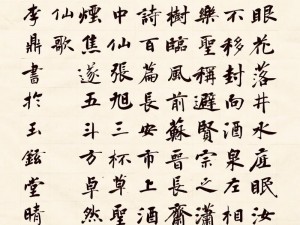 眼花落井水底眠汝
不移封向酒泉左相
樂聖稱避賢宗之瀟
樹臨風前蘇晉長齋
詩百篇長安市上酒
中仙張旭三杯草聖
煙焦遂五斗方卓然
仙歌
李鼎書於玉鉉堂晴